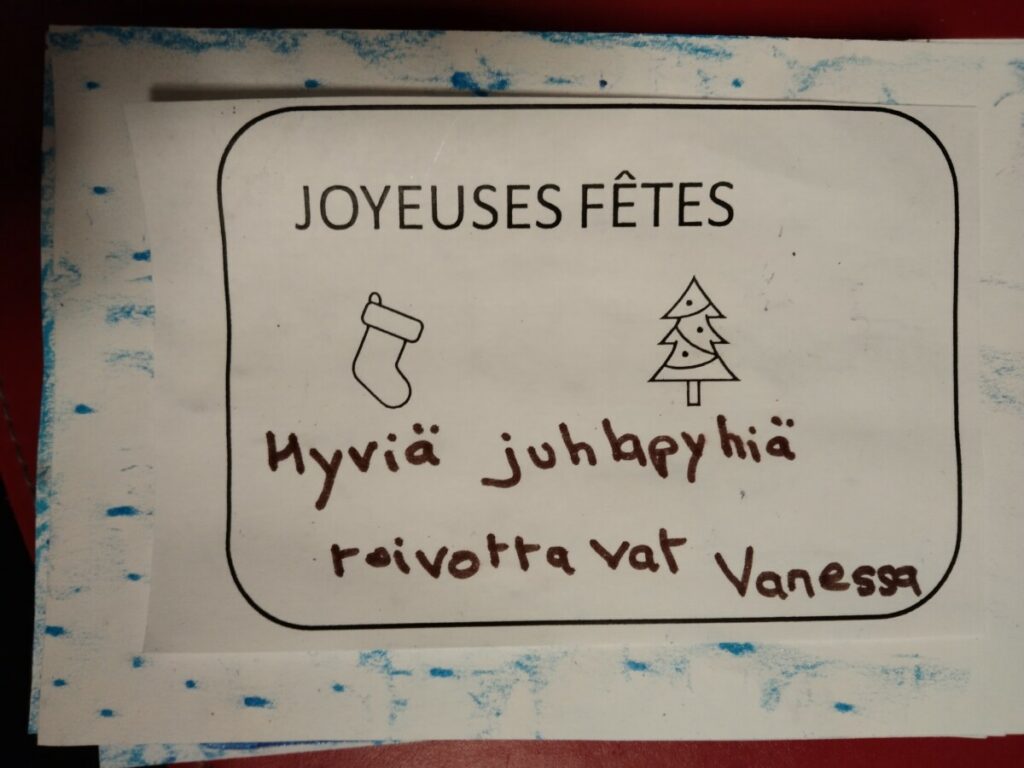 JOYEUSES FÊTES
Hyviä juhlapyhiä
toivottavat Vanessa